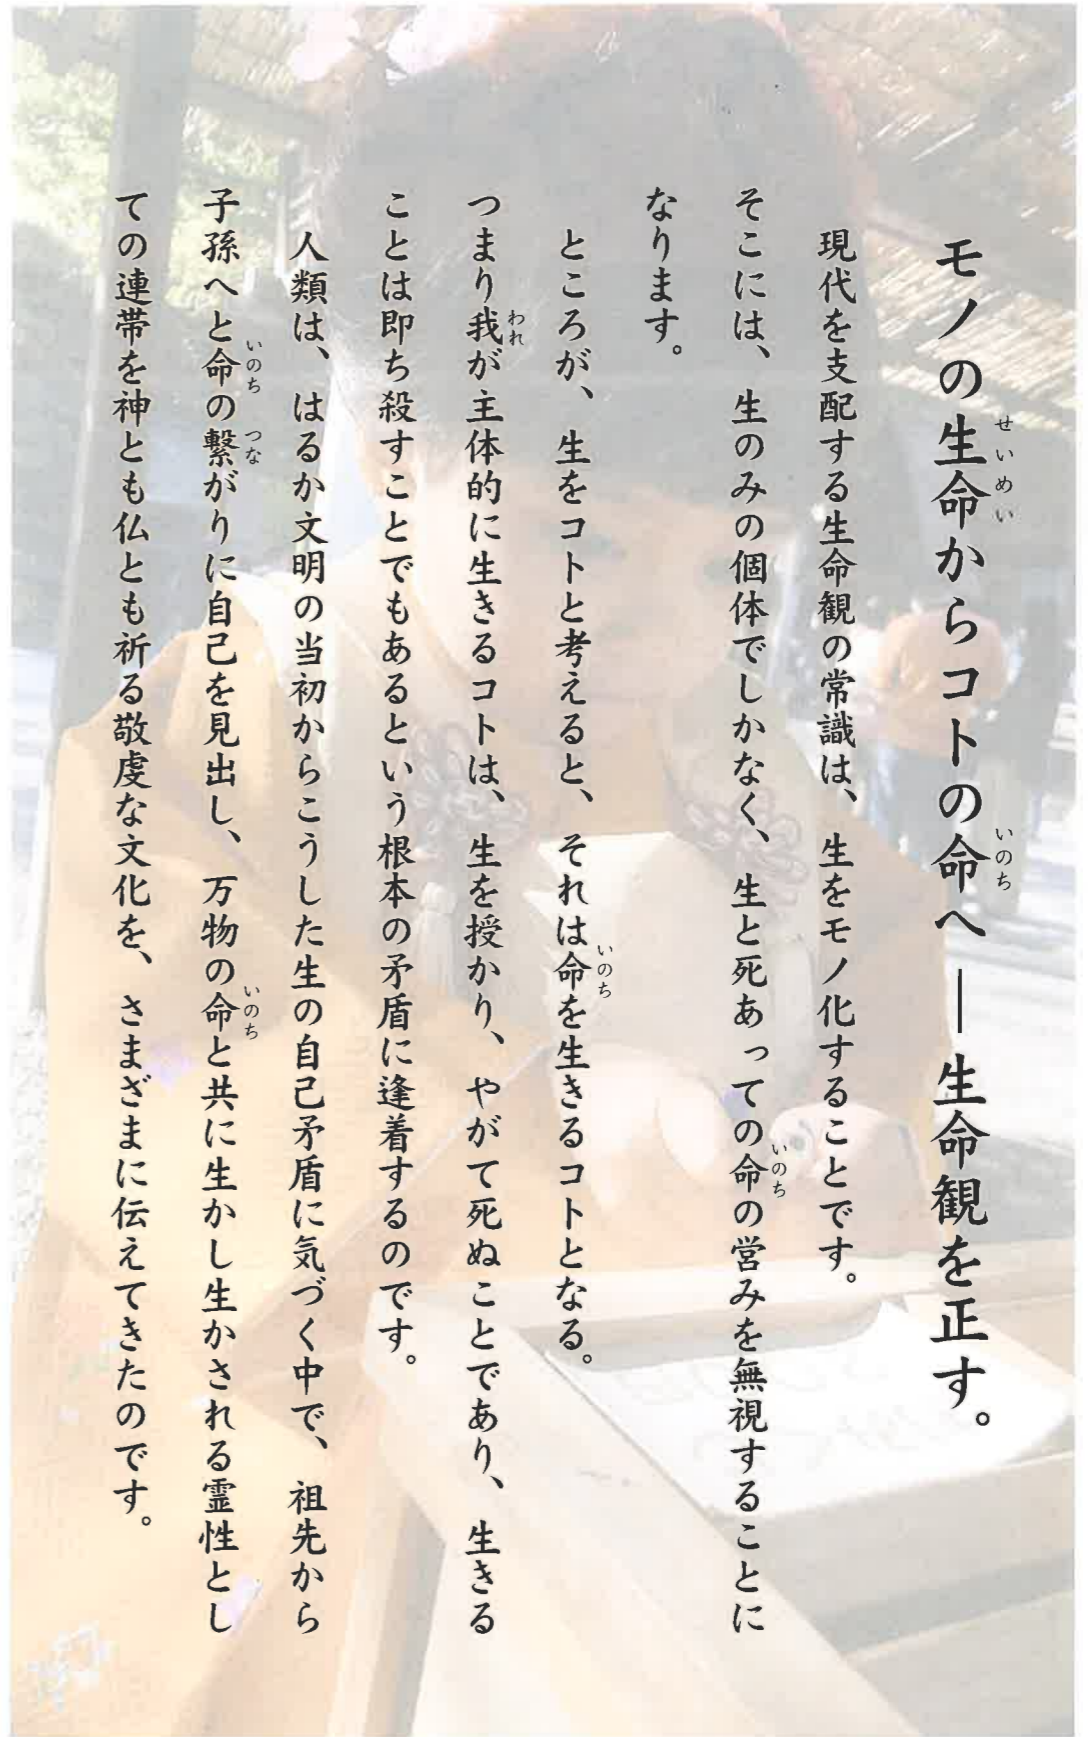 モノの生命からコトの命へ ―生命観を正す。
現代を支配する生命観の常識は、生をモノ化することです。
そこには、生のみの個体でしかなく、生と死あっての命の営みを無視することに
なります。
ところが、生をコトと考えると、それは命を生きるコトとなる。
つまり我が主体的に生きるコトは、生を授かり、やがて死ぬことであり、生きる
ことは即ち殺すことでもあるという根本の矛盾に逢着するのです。
人類は、はるか文明の当初からこうした生の自己矛盾に気づく中で、祖先から
子孫へと命の繋がりに自己を見出し、万物の命と共に生かし生かされる霊性とし
ての連帯を神とも仏とも祈る敬虔な文化を、さまざまに伝えてきたのです。